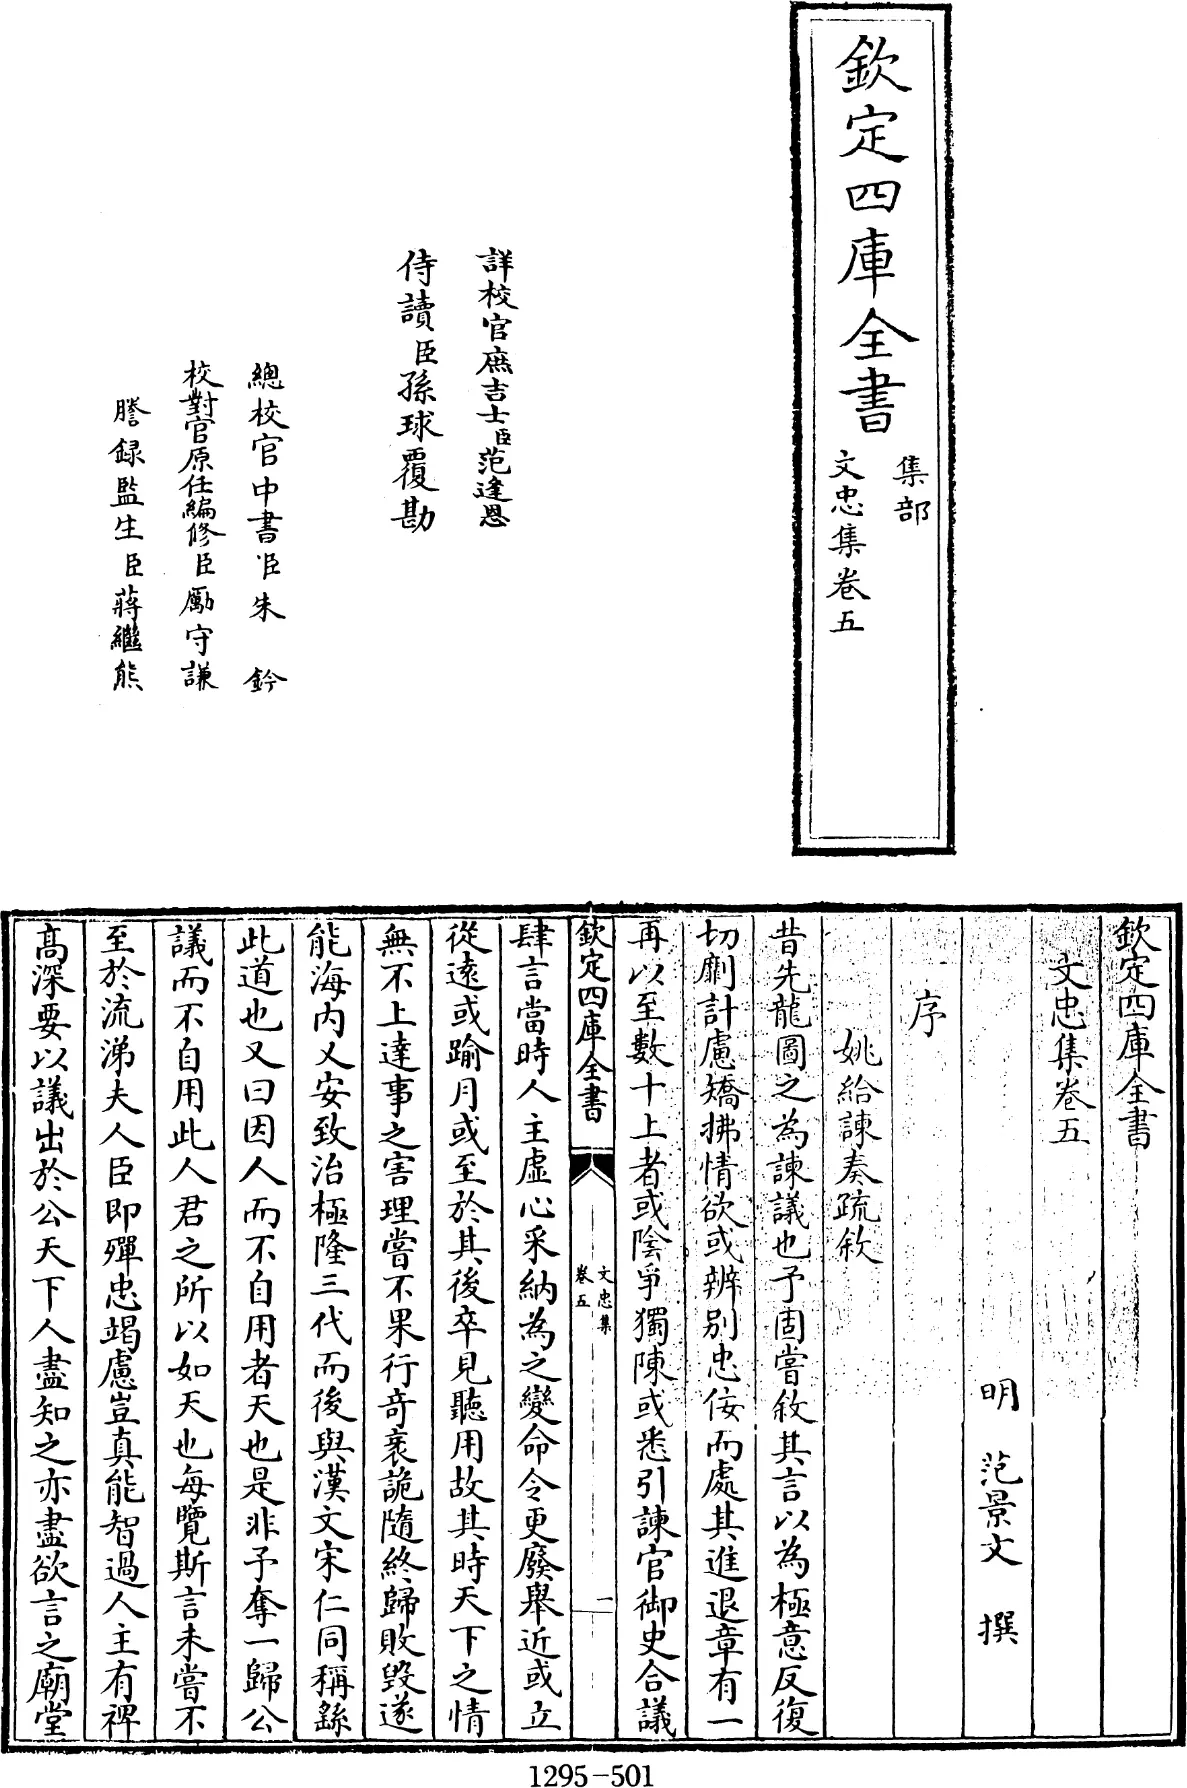 欽定四庫全書
集部
文忠集卷五
詳校官庶吉士臣范逢恩
侍讀臣孫球覆勘
總校官中書臣朱鈐
校對官原任編修臣勵守謙
謄録監生臣蔣繼熊
欽定四庫全書
文忠集卷五
明 范景文 撰
序
姚給諫奏疏敘
昔先龍圖之為諫議也予固嘗敘其言以為極意反復
切劘計慮矯拂情欲或辨別忠佞而處其進退章有一
再以至數十上者或陰爭獨陳或悉引諫官御史合議
欽定四庫全書
文忠集
卷五
一
肆言當時人主虛心采納為之變命令更廢舉近或立
從遠或踰月或至於其後卒見聽用故其時天下之情
無不上達事之害理嘗不果行奇衺詭隨終歸敗毀遂
能海内乂安致治極隆三代而後與漢文宋仁同稱繇
此道也又曰因人而不自用者天也是非予奪一歸公
議而不自用此人君之所以如天也每覽斯言未嘗不
至於流涕夫人臣即殫忠竭慮豈真能智過人主有裨
高深要以議出於公天下人盡知之亦盡欲言之廟堂
1295-501